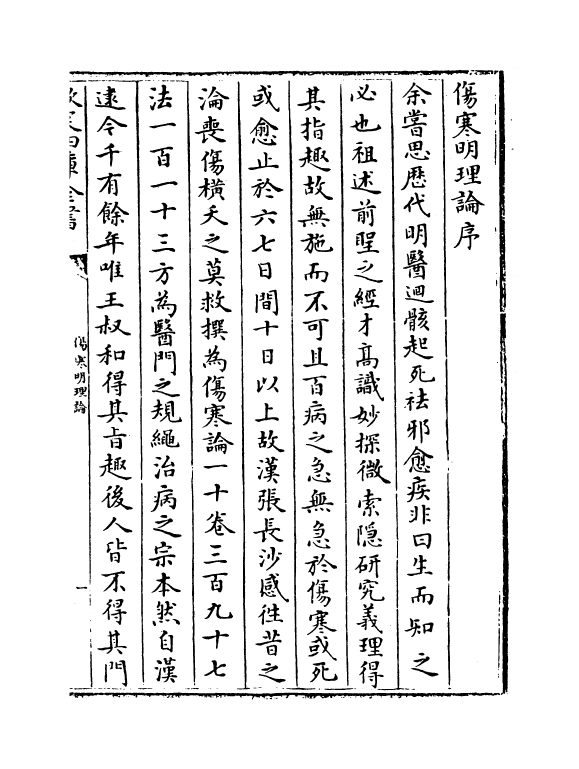 傷寒明理論序
余嘗思歴代明醫迴骸起死祛邪愈疾非曰生而知之
必也祖述前聖之經才髙識妙探微索隠研究義理得
其指趣故無施而不可且百病之急無急於傷寒或死
或愈止於六七日間十日以上故漢張長沙感徃昔之
淪喪傷橫夭之莫救撰為傷寒論一十卷三百九十七
法一百一十三方為醫門之規繩治病之宗本然自漢
逮今千有餘年唯王叔和得其旨趣後人皆不得其門
欽定四庫全書
傷寒明理論
一